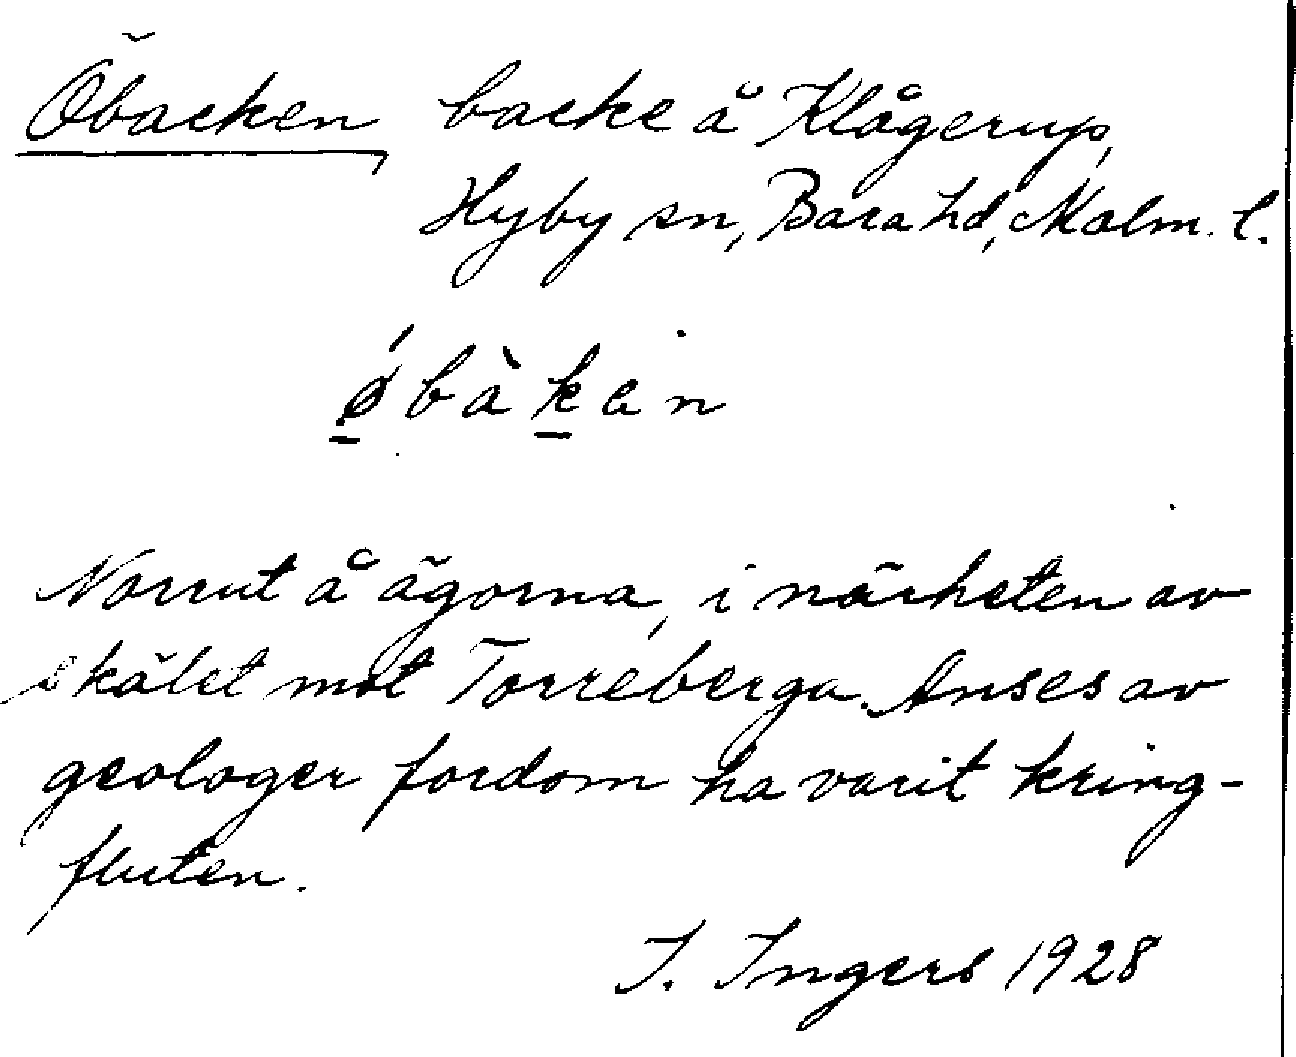 Öbacken, backe å Klågerup,
Hyby sn, Bara hd, Malm. l.
ǿbàkan
Norrut å ägorna, i närheten av
skälet mot Torreberga. Anses av
geologer fordom ha varit kring-
fluten.
I. Ingers 1928